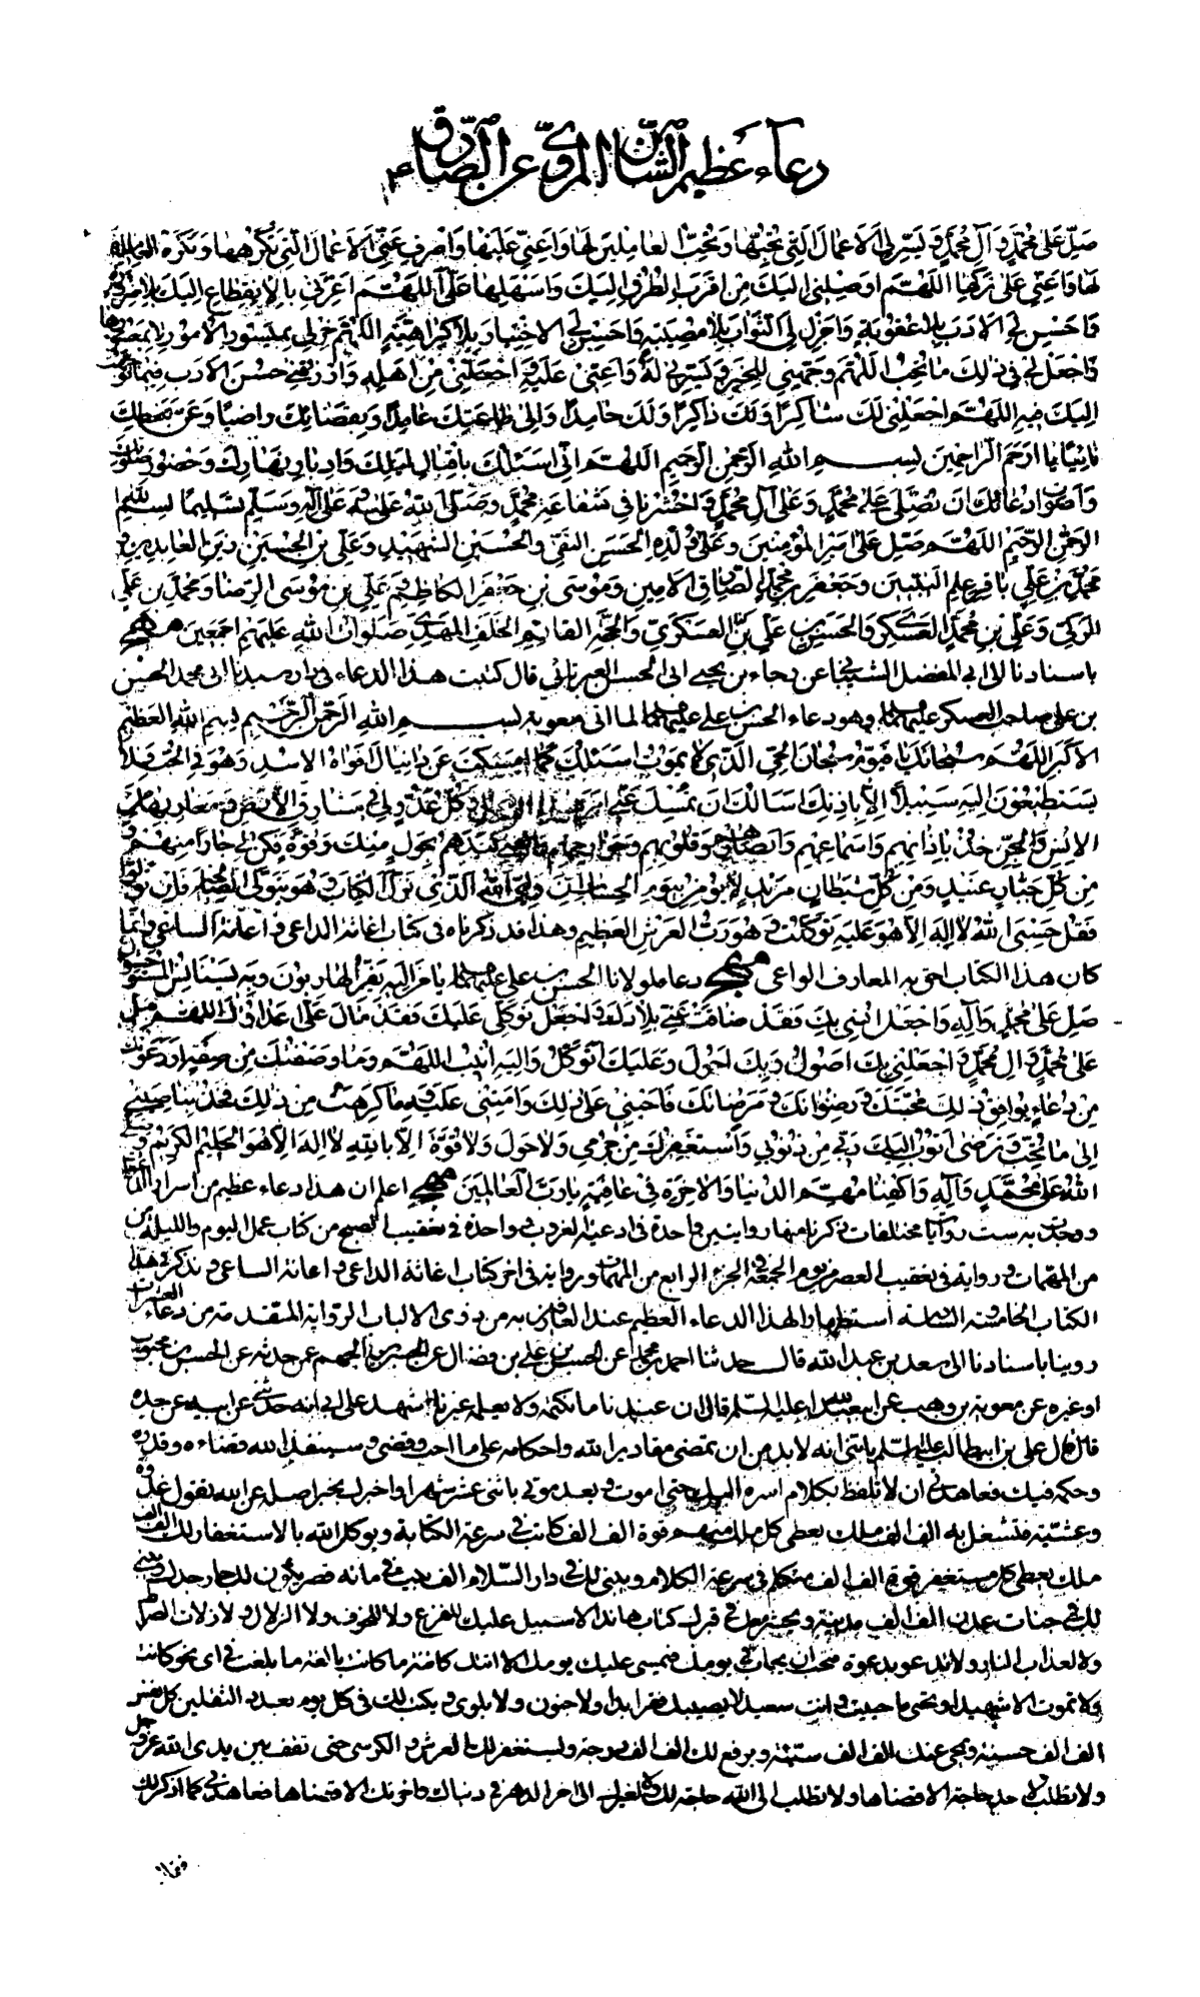 دعاء عظيم الشان المروي عن الصادق ع
صل على محمد وآل محمد ويسر لي الأعمال التي تحبها وتحب العاملين لها واعني عليها واصرف عني الأعمال التي تكرهها وتكره العاملين
لها واعني على تركها اللهم اوصلني اليك من اقرب الطرق اليك واسهلها علي اللهم اعزني بالانقطاع اليك
فاحسن لي الادب بلا عقوبة واجزل لي الثواب بلا مصيبة واحسن لي الاختيار بلا كراهية اللهم خر لي بميسور الامور لا بمعسورها
واجعل لي في ذلك ما تحب اللهم وجهني للخير ويسره لي واعني عليه واجعلني من اهله وارزقني حسن الادب فيما
اليك فيه اللهم اجعلني لك شاكرا ولك ذاكرا ولك حامدا والى طاعتك عامدا وبقضائك راضيا وعن سخطك
نائيا يا ارحم الراحمين بسم الله الرحمن الرحيم اللهم اني اسئلك باقبال ليلك وادبار نهارك وحضور صلواتك
واصوات دعائك ان تصلي على محمد وعلى آل محمد واحشرنا في شفاعة محمد وصلى الله عليه وعلى آله وسلم تسليما بسم الله
الرحمن الرحيم اللهم صل على امير المؤمنين وعلى ولده الحسن النقي والحسين الشهيد وعلي بن الحسين زين العابدين و
محمد بن علي باقر علم النبيين وجعفر بن محمد الصادق الامين وموسى بن جعفر الكاظم وعلي بن موسى الرضا ومحمد بن علي
الزكي وعلي بن محمد العسكري والحسن بن علي العسكري والحجة القائم الخلف المهدي صلوات الله عليهم اجمعين
باسنادنا الى ابي المفضل الشيباني عن رجاء بن يحيى ابي الحسن العبرتائي قال كتبت هذا الدعاء في دار سيدنا ابي محمد الحسن
بن علي صاحب العسكر عليهما السلام وهو دعاء الحسن بن علي عليهما السلام لما اتى معوية بسم الله الرحمن الرحيم بسم الله العظيم
الاكبر اللهم سبحانك يا قيوم سبحان الحي الذي لا يموت اسئلك كما امسكت عن دانيال افواه الاسد وهو في الجب فلا
يستطيعون اليه سبيلا الا باذنك اسالك ان تمسك عني امر هذا الرجل وكل عدو لي في مشارق الارض ومغاربها من
الانس والجن خذ باذانهم واسماعهم وابصارهم وقلوبهم وجوارحهم واكفني كيدهم بحول منك وقوة وكن لي جارا منهم و
من كل جبار عنيد ومن كل شيطان مريد لا يؤمن بيوم الحساب ان وليي الله الذي نزل الكتاب وهو يتولى الصالحين فان تولوا
فقل حسبي الله لا اله الا هو عليه توكلت وهو رب العرش العظيم وهذا قد ذكرناه في كتاب اغاثة الداعي واعانة الساعي وانما
كان هذا الكتاب احق به المعارف الواعي دعاء مولانا الحسن بن علي عليهما السلام يا من اليه يفر الهاربون وبه يستانس المستوحشون
صل على محمد وآله واجعل انسي بك فقد ضاقت عني بلادك واجعل توكلي عليك فقد مال علي اعداؤك اللهم صل
على محمد وال محمد واجعلني بك اصول وبك احول وعليك اتوكل واليه انيب اللهم وما وصفتك من صفة او دعوتك
من دعاء يوافق ذلك محبتك ورضوانك ومرضاتك فاحيني على ذلك وامتني عليه وما كرهت من ذلك فخذ بناصيتي
الى ما تحب وترضى اتوب اليك ربي من ذنوبي واستغفرك من جرمي ولا حول ولا قوة الا بالله لا اله الا هو الحليم الكريم وصلى
الله على محمد وآله واكفنا مهم الدنيا والاخرة في عافية يا رب العالمين اعلم ان هذا دعاء عظيم من اسرار الدعوات
ووجدت به ست روايات مختلفات ذكرنا منها روايتين واحدة في ادعية الغروب وواحدة في تعقيب الصبح من كتاب عمل اليوم والليلة من
من المهمات ورواية في تعقيب العصر يوم الجمعة في الجزء الرابع من المهمات ورواية في اخر كتاب اغاثة الداعي واعانة الساعي ونذكر في هذا
الكتاب الخامسة السادسة استظهارا لهذا الدعاء العظيم عند العارفين به من ذوي الالباب الرواية المتقدمة من دعاء العشرات
روينا باسنادنا الى سعد بن عبد الله قال حدثنا احمد بن محمد عن الحسن بن علي بن فضال عن الحسن بن الجهم عمن حدثه عن الحسن بن محبوب
او غيره عن معوية بن وهب عن ابي عبد الله عليه السلام قال ان عندنا ما نكتمه ولا يعلمه غيرنا اشهد على ابي انه حدثني عن ابيه عن جده
قال قال علي بن ابيطالب عليه السلم يا بني انه لا بد من ان تمضي مقادير الله واحكامه على ما احب وقضى وسينفذ الله قضاءه وقدره
وحكمه فيك فعاهدني ان لا تلفظ بكلام اسره اليك حتى اموت وبعد موتي باثنى عشر شهرا واخبرك بخبر اصله عن الله تقول غدوة
وعشية فتشغل به الف الف ملك يعطى كل ملك منهم قوة الف الف كاتب في سرعة الكتابة ويوكل الله بالاستغفار لك الف الف
ملك يعطى كل مستغفر قوة الف الف متكلم في سرعة الكلام ويبنى لك في دار السلام الف بيت في مائة قصر يكون لك جار جدك ويبنى
لك في جنات عدن الف الف مدينة ويحشر معك في قبرك كتاب هاندا لا سبيل عليك للفزع ولا للخوف ولا الزلازل ولا زلات الصراط
ولا لعذاب النار ولا تدعو بدعوة فتحب ان يجاب في يومك فيمسي عليك يومك الا اتتك كائنة ما كانت بالغة ما بلغت في اي نحو كانت
ولا تموت الا شهيدا وتحيى ما حييت وانت سعيد لا يصيبك فقر ابدا ولا جنون ولا بلوى ويكتب لك في كل يوم بعدد الثقلين كل نفس
الف الف حسنة ويمحى عنك الف الف سيئة ويرفع لك الف الف درجة ويستغفر لك العرش والكرسي حتى تقف بين يدي الله عز وجل
ولا تطلب لاحد حاجة الا قضاها ولا تطلب الى الله حاجة لك ولا لغيرك الى اخر الدهر في دنياك واخرتك الا قضاها فعاهدني كما اذكر لك